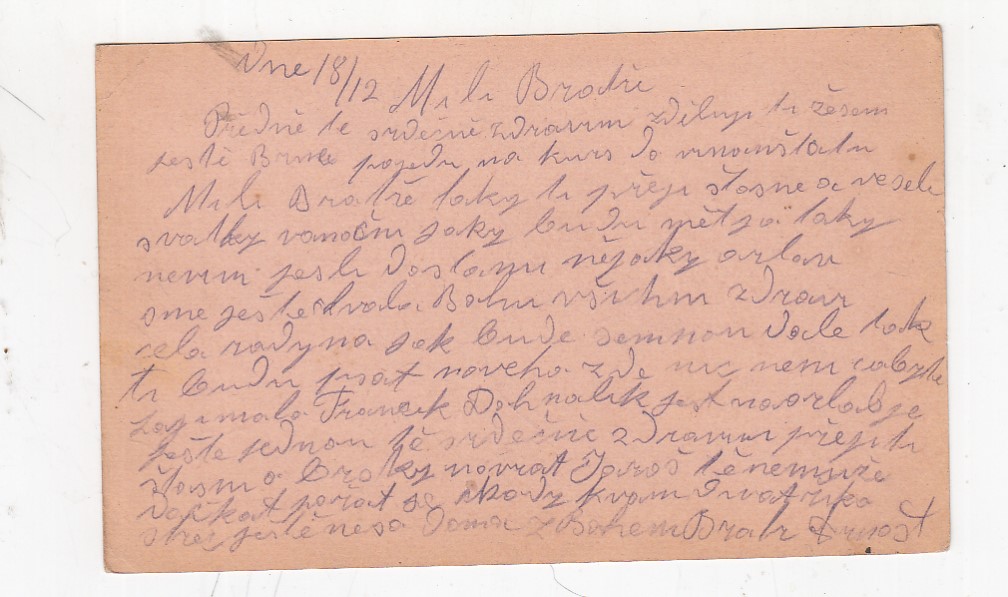 Dne 18/12 Mili Bratře
Předně te srdečně zdravim zděluji ti žesem
jestě Brune pojedu na kurs do
Mili Bratře taky ti přeji štasne a veseli
svatky vanočni jaky budu mět ja taky
nevim jesli dostanu nějaky orlau
sme ještě chvala Bohu všichni zdravi
cela rodyna jak bude semnou dale tak
ti budu psat noveho zde nic neni coby te
zajimalo Francek Dohnalik jest na orlabje
ještě jednou tě srdečně zdravim přeji ti
štasni a brzky navrat Jaroš tě nemuže
dočkat pořat se chody kvam divat
streč ještě neso doma z Bohem Bratr Arnošt